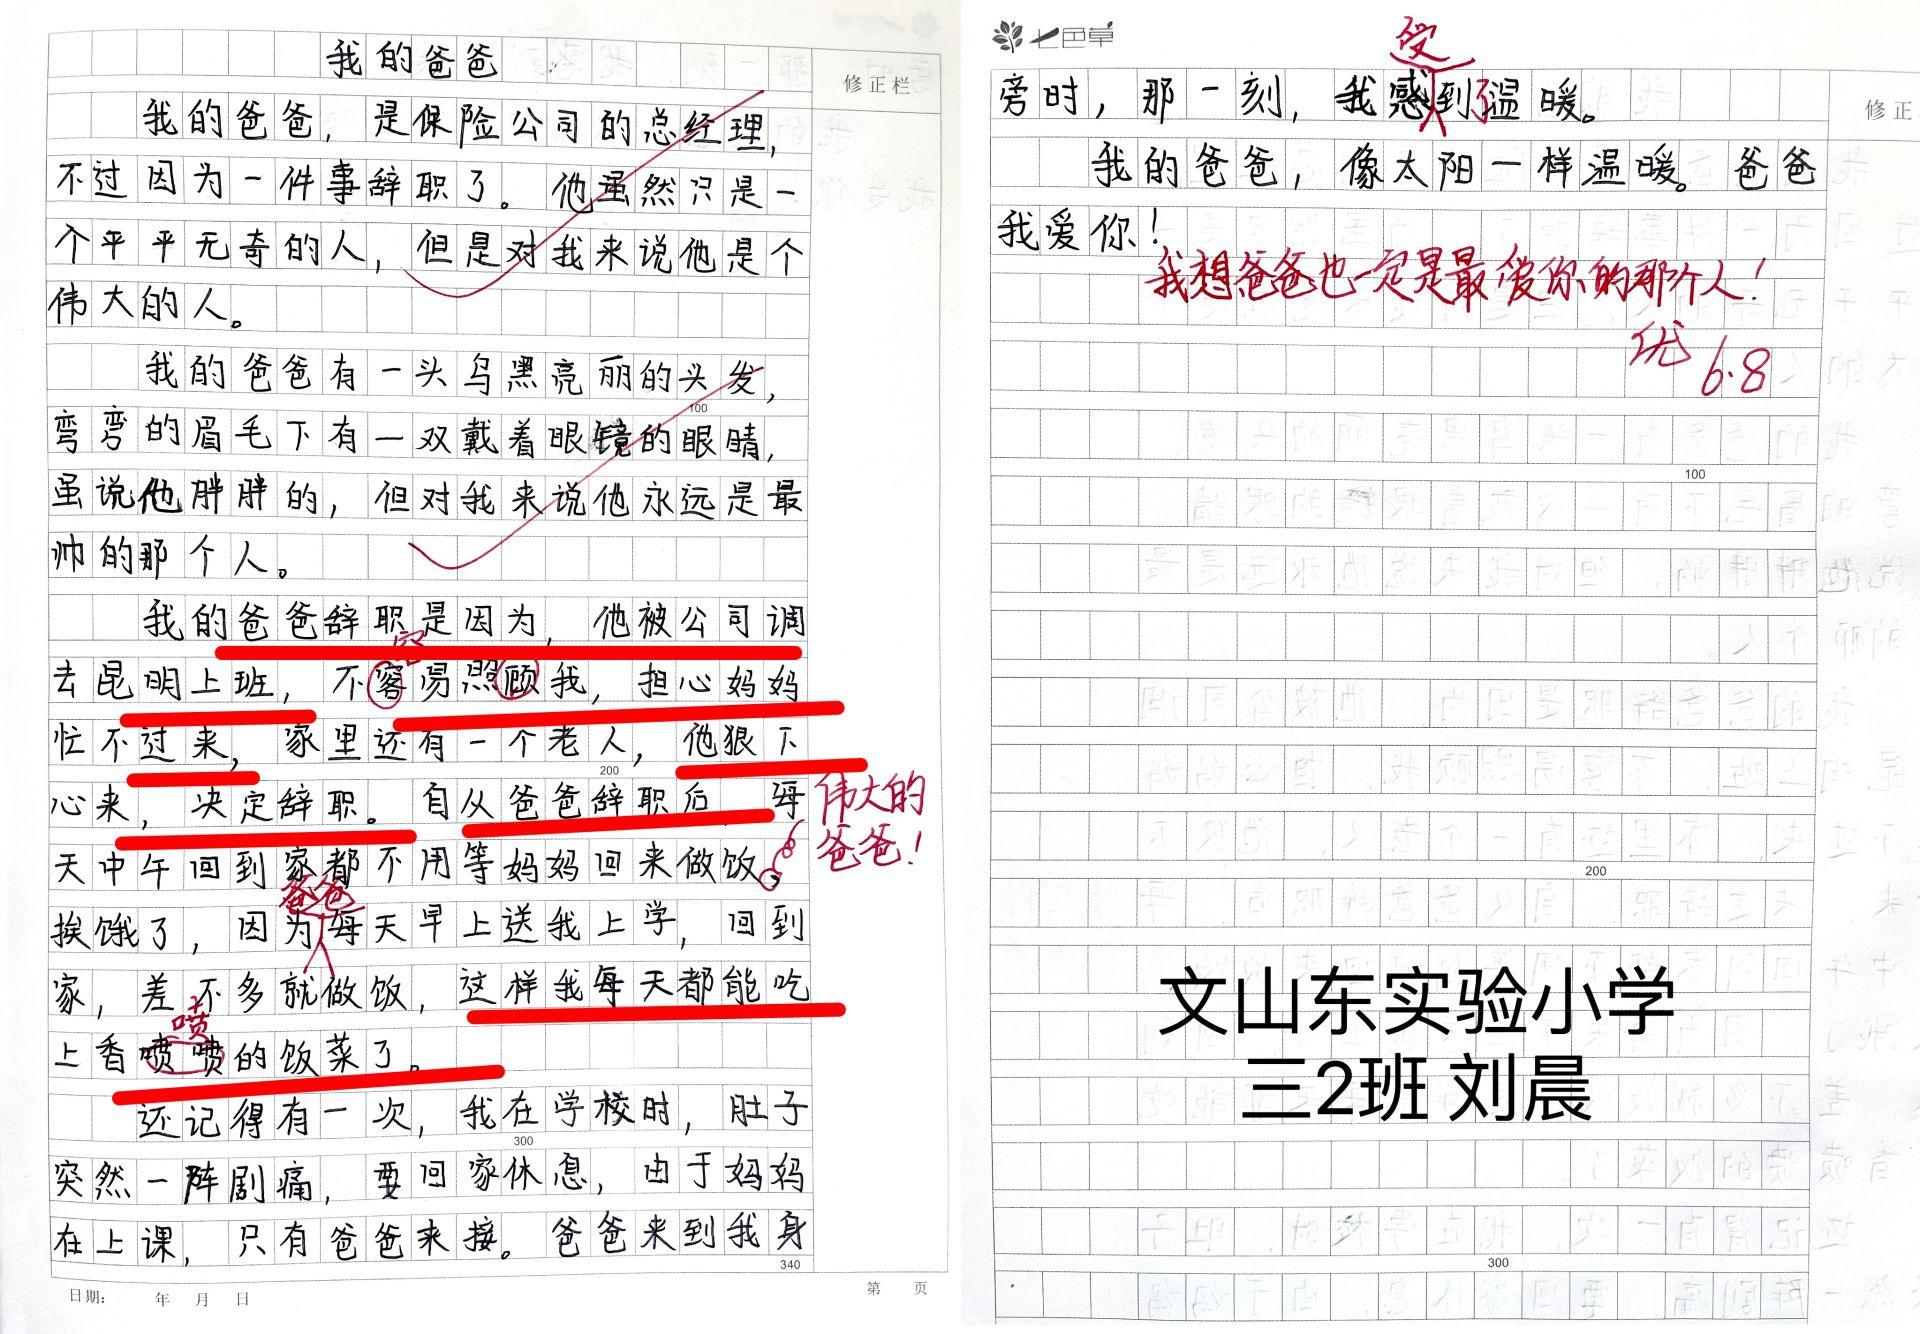 我的爸爸
修正栏
我的爸爸，是保险公司的总经理，
不过因为一件事辞职了。他虽然只是一
个平平无奇的人，但是对我来说他是个
伟大的人。
我的爸爸有一头乌黑亮丽的头发，
100
弯弯的眉毛下有一双戴着眼镜的眼睛，
虽说他胖胖的，但对我来说他永远是最
帅的那个人。
我的爸爸辞职是因为，他被公司调
容
去昆明上班，不容易照顾我，担心妈妈
忙不过来，家里还有一个老人，他狠下
200
心来，决定辞职。自从爸爸辞职后，每
伟大的
爸爸！
天中午回到家都不用等妈妈回来做饭，
爸爸
挨饿了，因为每天早上送我上学，回到
家，差不多就做饭，这样我每天都能吃
喷
上香喷喷的饭菜了。
还记得有一次，我在学校时，肚子
300
突然一阵剧痛，要回家休息，由于妈妈
在上课，只有爸爸来接。爸爸来到我身
340
日期： 年 月 日
第 页
七色草
受
修正
旁时，那一刻，我感到了温暖。
我的爸爸，像太阳一样温暖。爸爸
我爱你！
我想爸爸也一定是最爱你的那个人！
优 6.8
100
200
文山东实验小学
三2班 刘晨
300